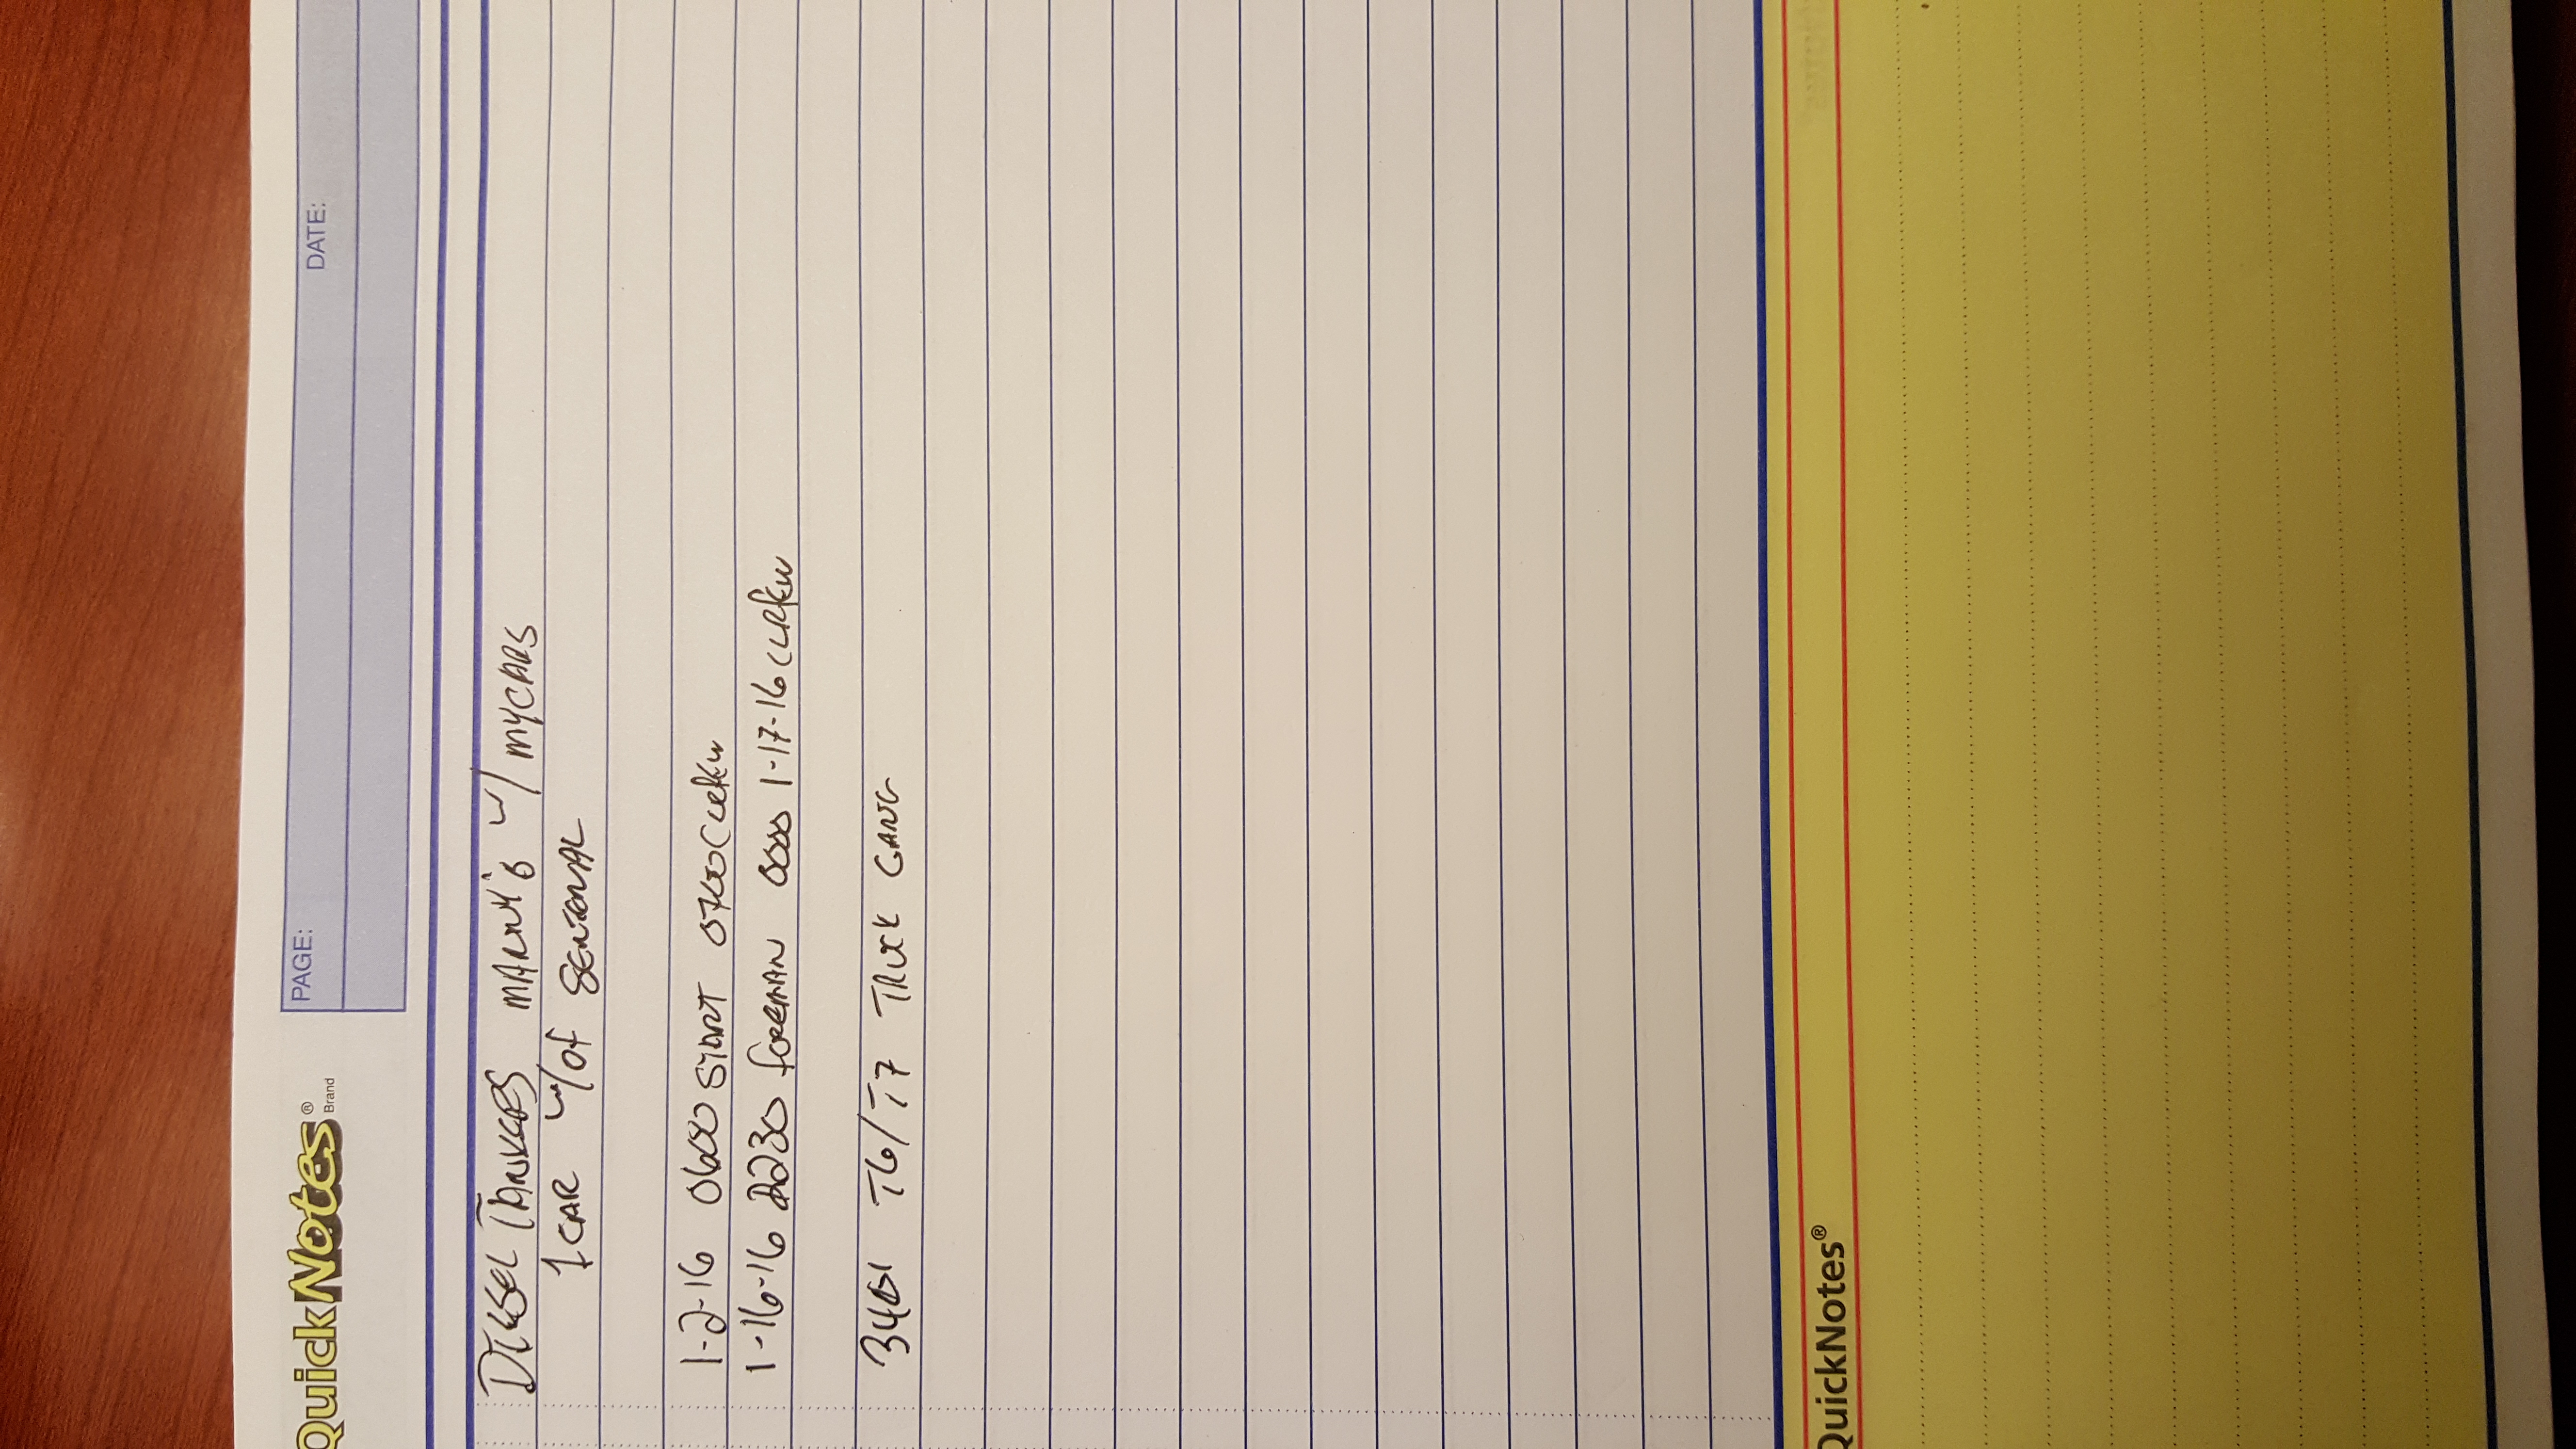 QuickNotes® Brand
PAGE: DATE:
DIESEL TANKERS MANNY'S w/ MYCARS
1 CAR w/of SENTONAL
1-2-16 0600 START 0700
1-16-16 2230 foreman 1-17-16
T6/T7 TRUCK GANG
QuickNotes®